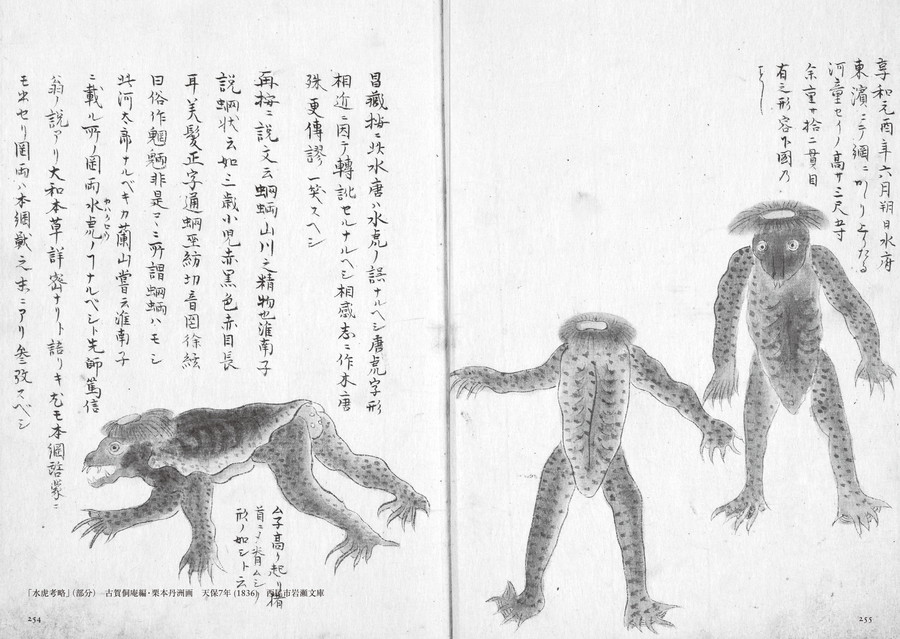 享和元酉年六月朔日水府
東濱ニテ網ニカヽリ上リタル
河童セイノ高サ三尺五寸
余重サ拾二貫目
有之形容下圖乃
よし
昌臧按ニ此水唐ハ水虎ノ誤ナルベシ唐虎字形
相近ニ因テ轉訛セルナルベシ相感志ニ作木唐
殊更傳謬一笑スヘシ
再按ニ説文云蝄蜽山川之精物也淮南子
説蝄状云如三歳小児赤黒色赤目長
耳美髪正字通蝄巫紡切音罔徐鉉
曰俗作魍魎非是コヽニ所謂蝄蜽ハモシ
此河太郎ナルベキカ蘭山嘗云淮南子
ニ載ル所ノ罔両水虎ノコナルベシト先師篤信
翁ノ説アリ大和本草詳審ナリト語リキ尤モ本綱啓蒙ニ
モ出セリ罔両ハ本綱獣之末ニアリ參攷スベシ
ノ如シト云
「水虎考略」（部分）　古賀侗庵編・栗本丹洲画　天保7年（1836）　西尾市岩瀬文庫
254
255